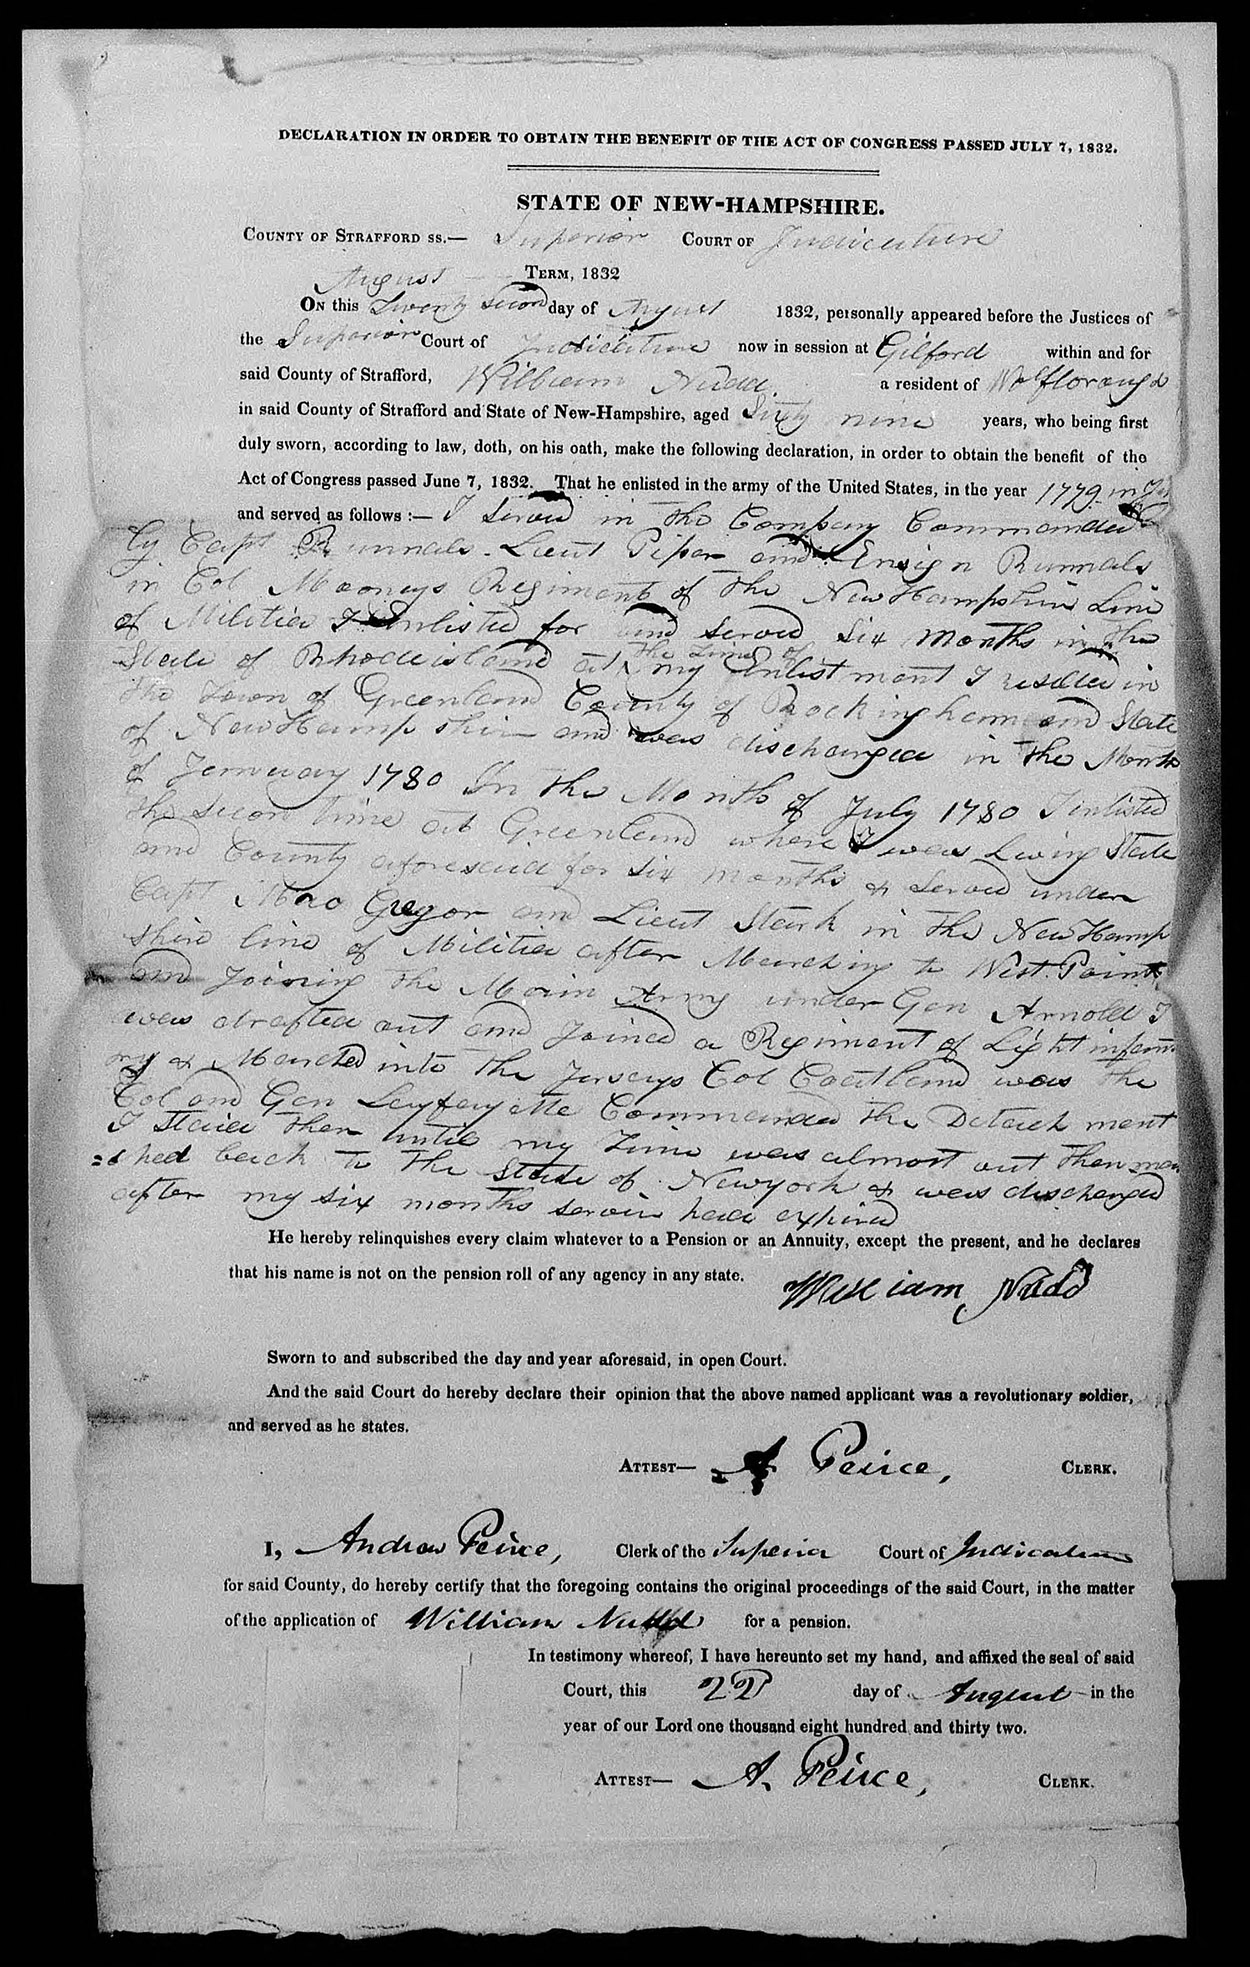 DECLARATION IN ORDER TO OBTAIN THE BENEFIT OF THE ACT OF CONGRESS PASSED JULY 7, 1832.
STATE OF NEW-HAMPSHIRE.
COUNTY OF STRAFFORD SS.— Superior COURT OF Judicature
August TERM, 1832
ON this Twenty second day of August 1832, personally appeared before the Justices of
the Superior Court of Judicature now in session at Gilford within and for
said County of Strafford, William Nudd a resident of Wolfborough
in said County of Strafford and State of New-Hampshire, aged Sixty nine years, who being first
duly sworn, according to law, doth, on his oath, make the following declaration, in order to obtain the benefit of the
Act of Congress passed June 7, 1832. That he enlisted in the army of the United States, in the year 1779 in
and served as follows :— I served in the Company Commanded
by Capt Runnals Lieut Piper and Ensign Runnals
in Col Mooneys Regiment of the New Hampshire Line
of Militia I Enlisted for and served six months in the
State of Rhodeisland at the time of my Enlistment I resided in
the Town of Greenland County of Rockingham and State
of New Hampshire and was discharged in the Month
of Jenuary 1780 In the Month of July 1780 I inlisted
the secon time at Greenland where I was Living State
and County aforesaid for six months & Served under
Capt Mac Gregor and Lieut Stark in the New Hamp
shire line of Militia after Marching to West Point
and Joining the Main Army under Gen Arnold I
was drafted out and Joined a Regiment of Light infant
ry & Marched into the Jerseys Col Coartland was the
Col and Gen Leyfayette Commanded the Detachment
I Staied then until my Time was almost out then mar
ched back to the State of Newyork & was discharged
after my six months servis had expired
He hereby relinquishes every claim whatever to a Pension or an Annuity, except the present, and he declares
that his name is not on the pension roll of any agency in any state. William Nudd
Sworn to and subscribed the day and year aforesaid, in open Court.
And the said Court do hereby declare their opinion that the above named applicant was a revolutionary soldier,
and served as he states.
ATTEST— A Peirce, CLERK.
I, Andrew Peirce, Clerk of the Superior Court of Judicature
for said County, do hereby certify that the foregoing contains the original proceedings of the said Court, in the matter
of the application of William Nudd for a pension.
In testimony whereof, I have hereunto set my hand, and affixed the seal of said
Court, this 22 day of August in the
year of our Lord one thousand eight hundred and thirty two.
ATTEST— A. Peirce, CLERK.